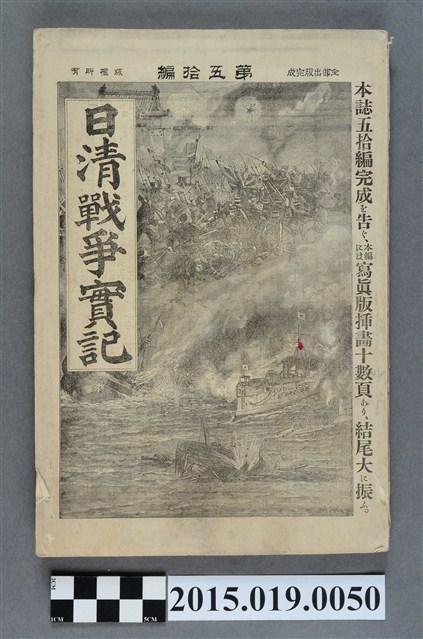 全部出版完成
第五拾編
版權所有
本誌五拾編完成を告ぐ、本編には寫眞版挿畫十數頁あり、結尾大に振ふ。
日清戰爭實記
1CM
1CM 5CM
2015.019.0050